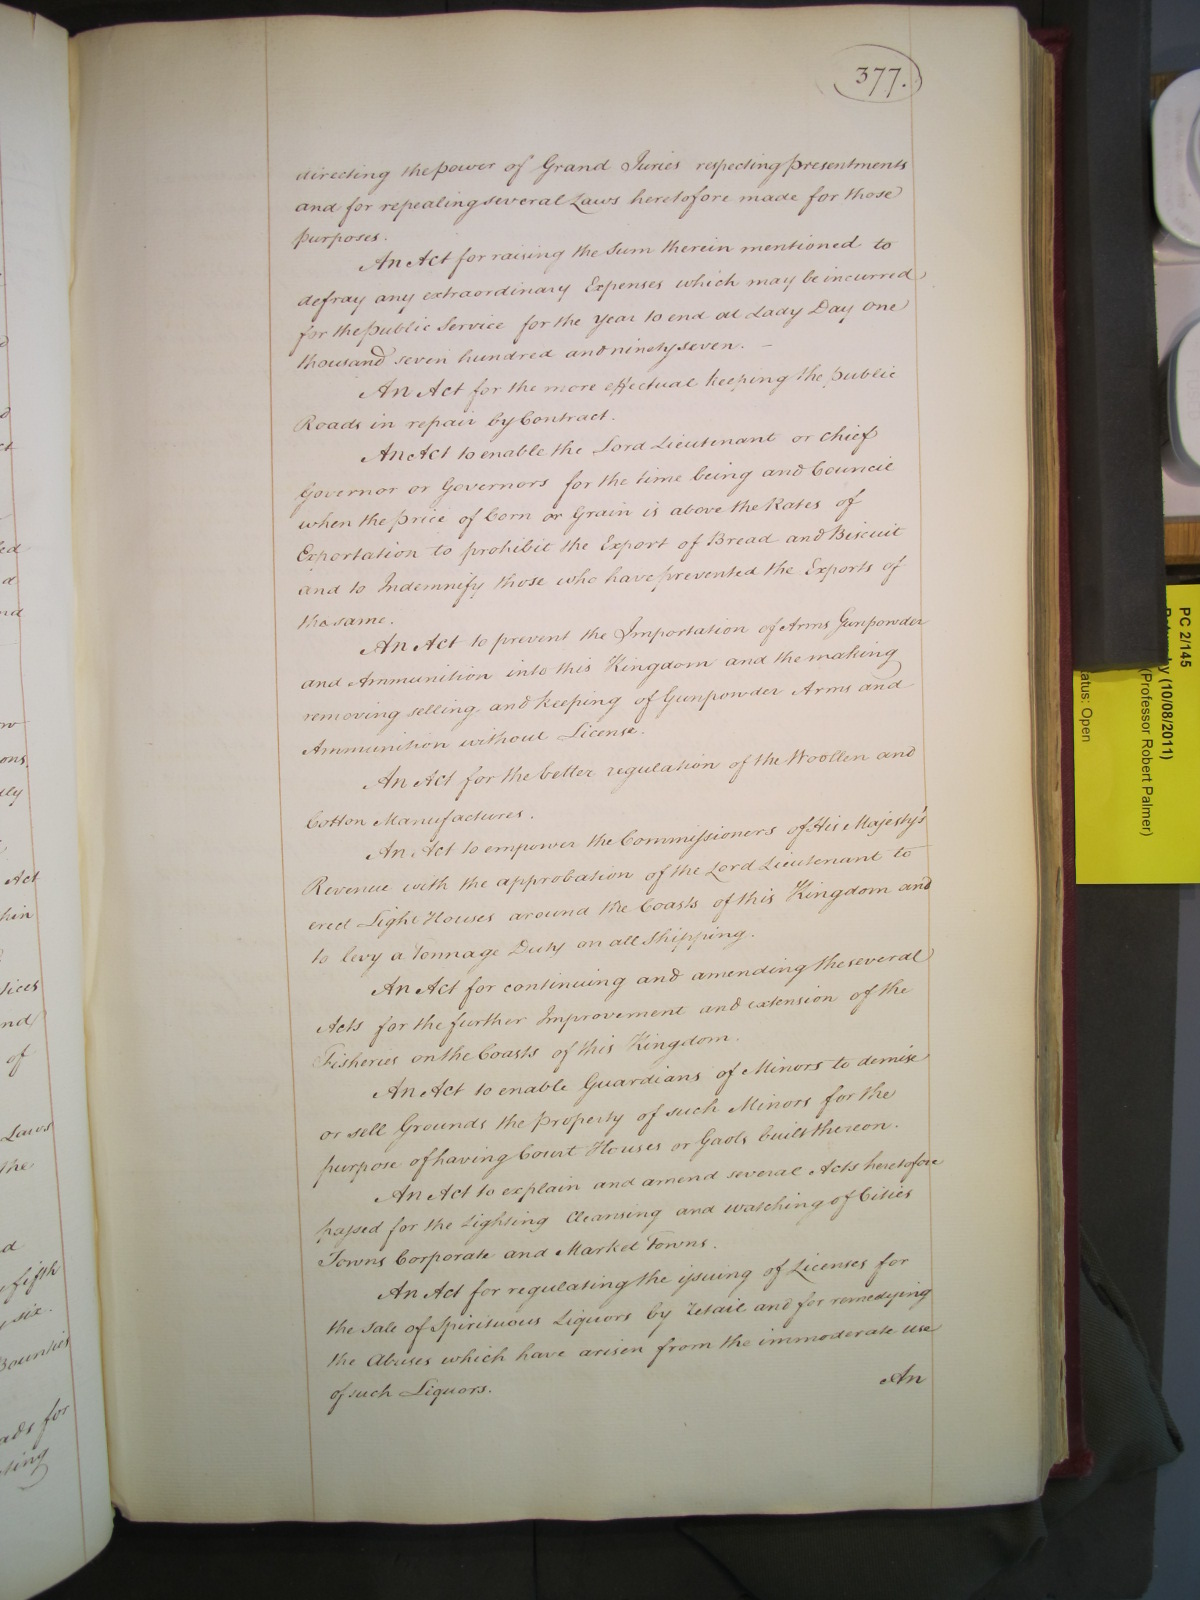 377.
directing the power of Grand Juries respecting presentments
and for repealing several Laws heretofore made for those
purposes.
An Act for raising the Sum therein mentioned to
defray any extraordinary Expenses which may be incurred
for the public Service for the Year to end at Lady Day One
thousand seven hundred and ninety seven. –
An Act for the more effectual keeping the public
Roads in repair by Contract.
An Act to enable the Lord Lieutenant or Chief
Governor or Governors for the time being and Council
when the price of Corn or Grain is above the Rates of
Exportation to prohibit the Export of Bread and Biscuit
and to Indemnify those who have prevented the Exports of
the same.
An Act to prevent the Importation of Arms Gunpowder
and Ammunition into this Kingdom and the making
removing selling and keeping of Gunpowder Arms and
Ammunition without License.
An Act for the better regulation of the Woollen and
Cotton Manufactures.
An Act to empower the Commissioners of His Majesty's
Revenue with the approbation of the Lord Lieutenant to
erect Light Houses around the Coasts of this Kingdom and
to levy a Tonnage Duty on all Shipping.
An Act for continuing and amending the several
Acts for the further Improvement and extension of the
Fisheries on the Coasts of this Kingdom.
An Act to enable Guardians of Minors to demise
or sell Grounds the property of such Minors for the
purpose of having Court Houses or Gaols built thereon.
An Act to explain and amend several Acts heretofore
passed for the Lighting Cleansing and watching of Cities
Towns Corporate and Market Towns.
An Act for regulating the issuing of Licenses for
the Sale of Spirituous Liquors by Retail and for remedying
the Abuses which have arisen from the immoderate use
of such Liquors.
An
PC 2/145
by (10/08/2011)
(Professor Robert Palmer)
atus: Open
Act
of
Laws
the
fifth
six.
Bounties
ads for